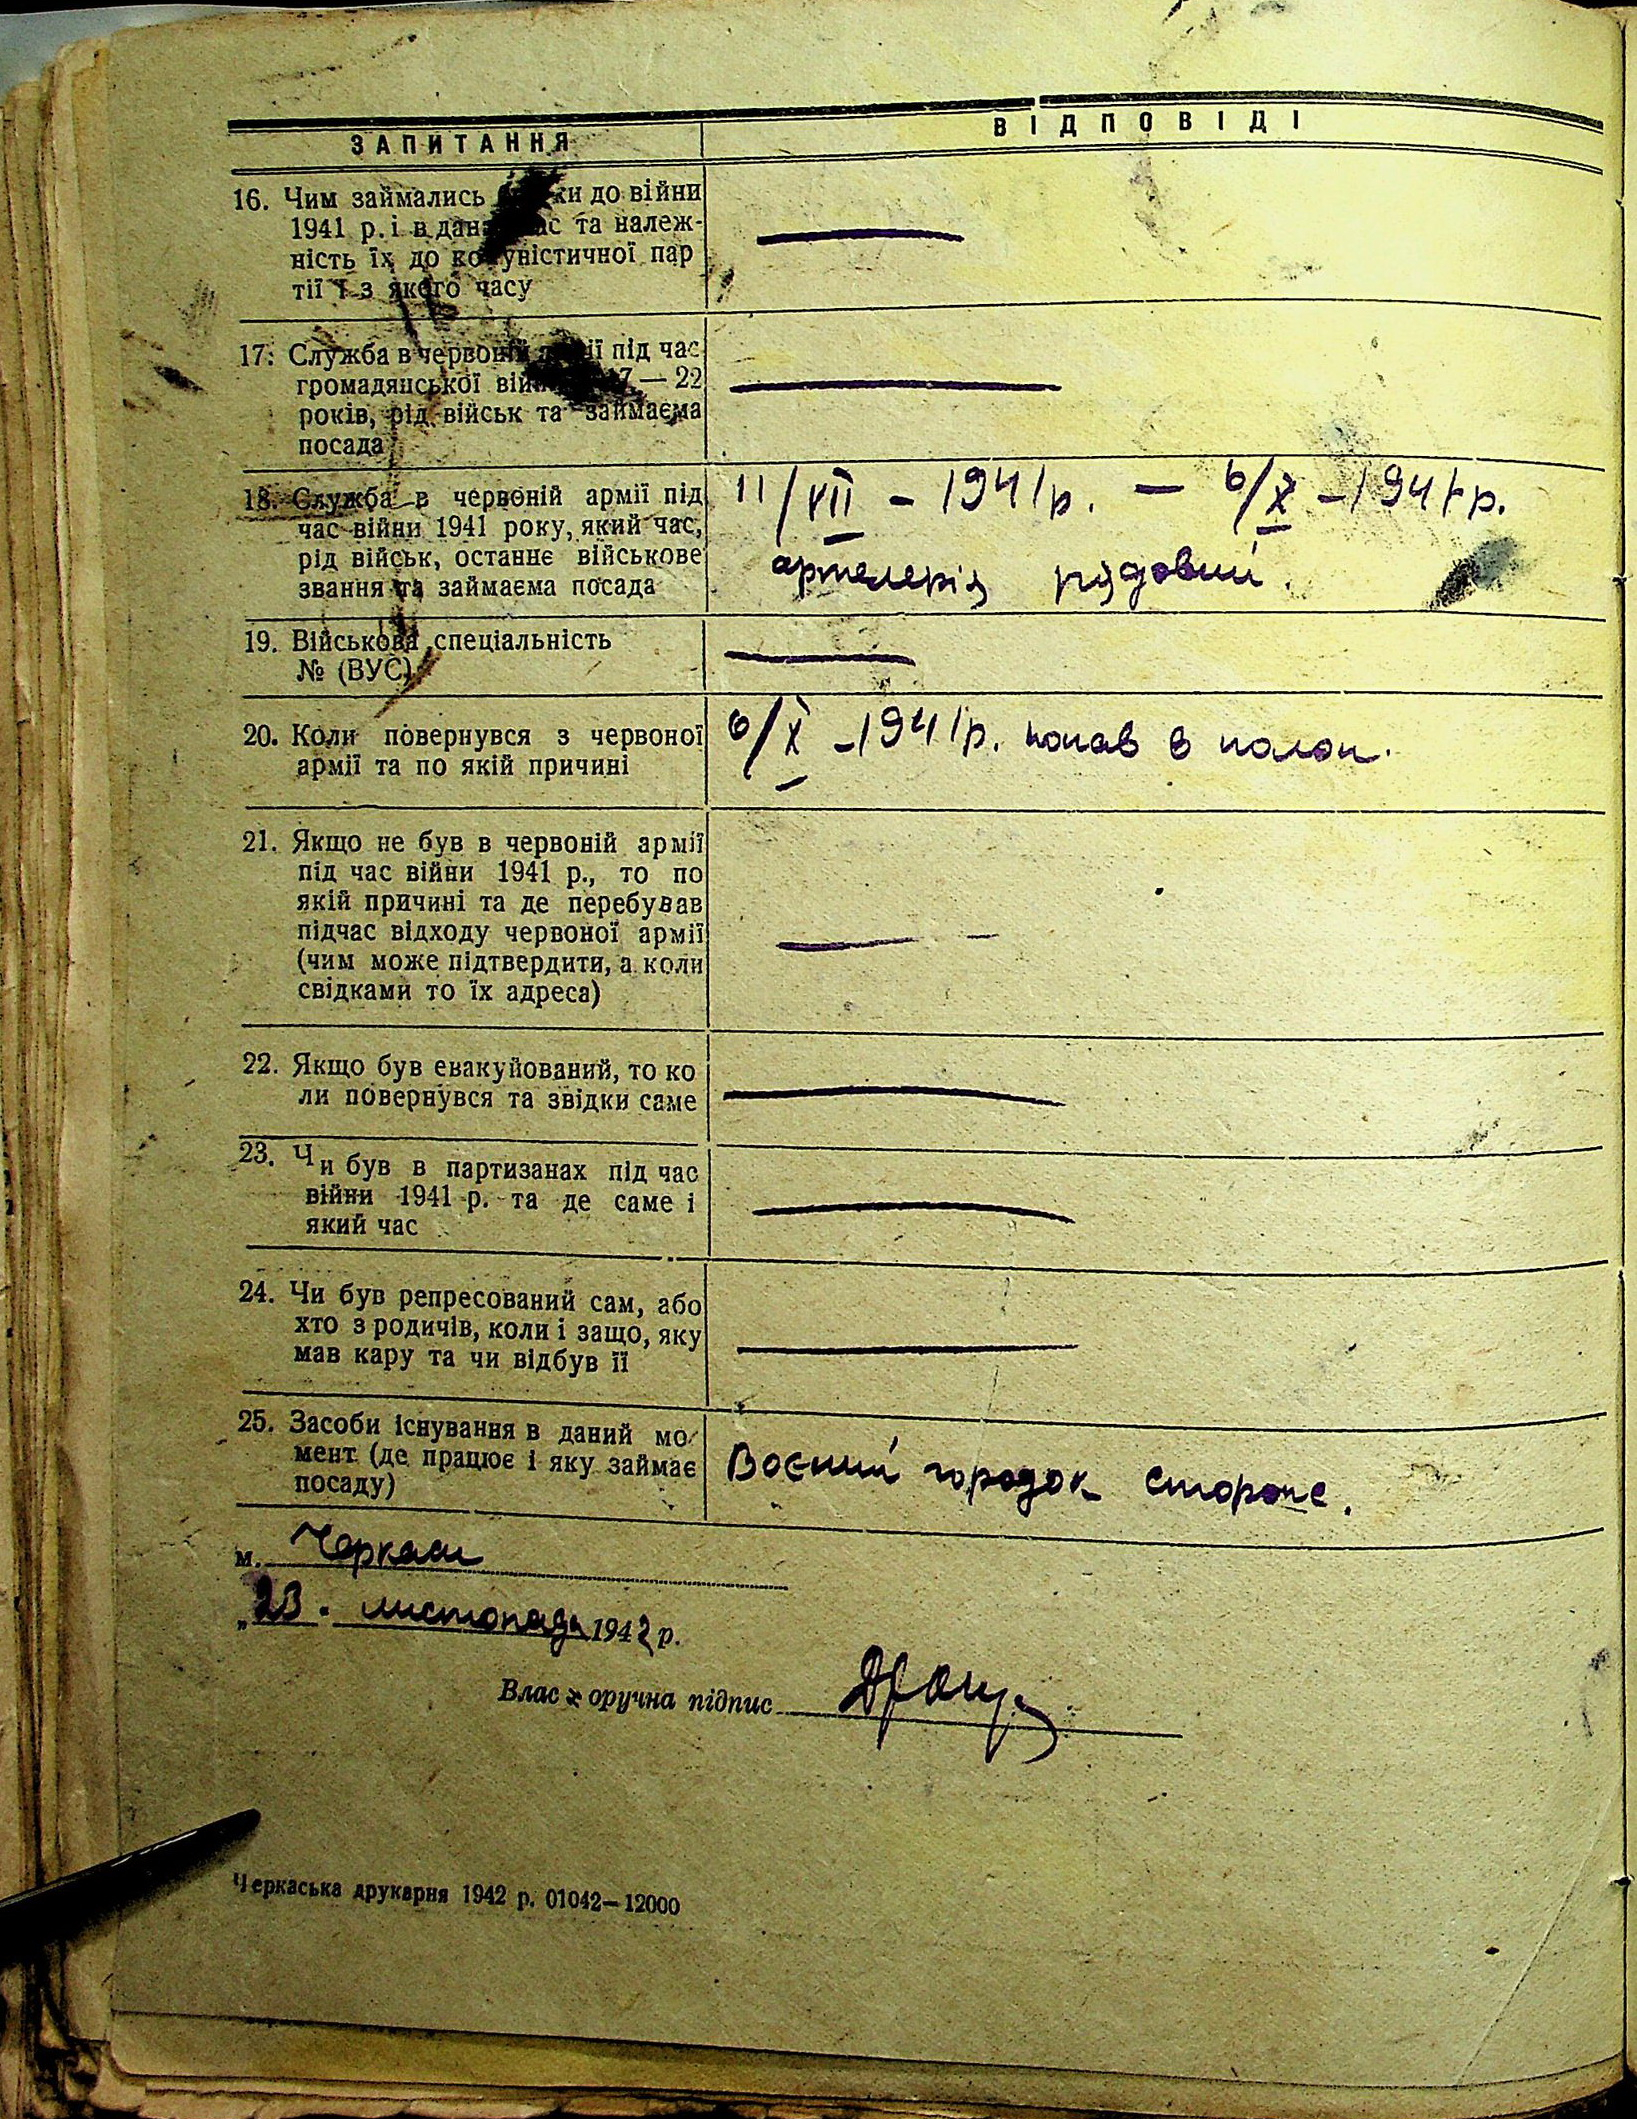 ЗАПИТАННЯ ВІДПОВІДІ
16. Чим займались ки до війни
1941 р. і в дан ас та належ-
ність їх до комуністичної пар
тії і з якого часу
17. Служба в червоній армії під час
громадянської вій 17 — 22
років, рід військ та займаєма
посада
18. Служба в червоній армії під
час війни 1941 року, який час,
рід військ, останнє військове
звання та займаєма посада
11/VII - 1941 р. — 6/X - 1941 р.
артелерія рядовий.
19. Військова спеціальність
№ (ВУС)
20. Коли повернувся з червоної
армії та по якій причині
6/X - 1941 р. попав в полон.
21. Якщо не був в червоній армії
під час війни 1941 р., то по
якій причині та де перебував
підчас відходу червоної армії
(чим може підтвердити, а коли
свідками то їх адреса)
22. Якщо був евакуйований, то ко
ли повернувся та звідки саме
23. Чи був в партизанах під час
війни 1941 р. та де саме і
який час
24. Чи був репресований сам, або
хто з родичів, коли і защо, яку
мав кару та чи відбув її
25. Засоби існування в даний мо-
мент (де працює і яку займає
посаду)
Воєний городок сторож.
м. Черкаси
„23. листопада 1942 р.
Влас х оручна підпис
Черкаська друкарня 1942 р. 01042—12000